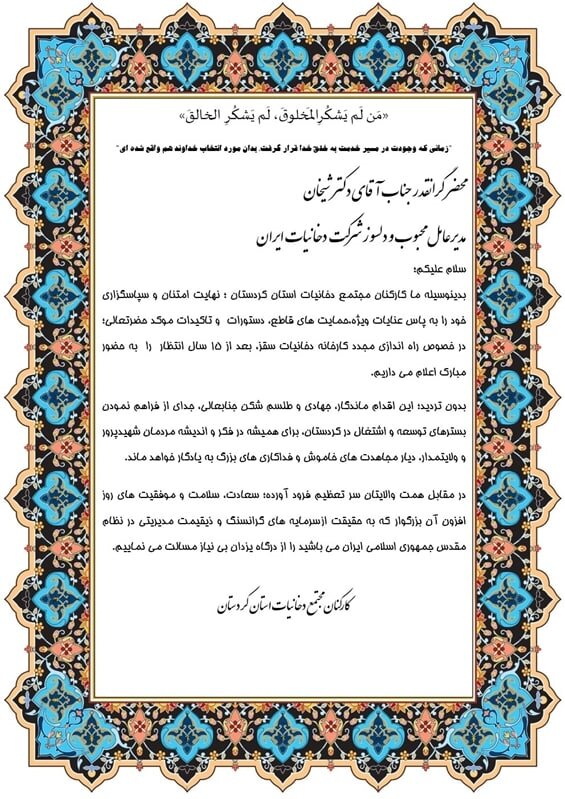 «مَن لَم يَشكُرِ المَخلوقَ، لَم يَشكُرِ الخالِقَ»
"زمانی که وجودت در مسیر خدمت به خلق خدا قرار گرفت، بدان مورد انتخاب خداوند هم واقع شده ای"
محضر گرانقدر جناب آقای دکتر شیخان
مدیرعامل محبوب و دلسوز شرکت دخانیات ایران
سلام علیکم؛
بدینوسیله ما کارکنان مجتمع دخانیات استان کردستان ؛ نهایت امتنان و سپاسگزاری
خود را به پاس عنایات ویژه،حمایت های قاطع، دستورات و تاکیدات موکد حضرتعالی؛
در خصوص راه اندازی مجدد کارخانه دخانیات سقز، بعد از ۱۵ سال انتظار را به حضور
مبارک اعلام می داریم.
بدون تردید؛ این اقدام ماندگار، جهادی و طلسم شکن جنابعالی، جدای از فراهم نمودن
بسترهای توسعه و اشتغال در کردستان، برای همیشه در فکر و اندیشه مردمان شهیدپرور
و ولایتمدار، دیار مجاهدت های خاموش و فداکاری های بزرگ به یادگار خواهد ماند.
در مقابل همت والایتان سر تعظیم فرود آورده؛ سعادت، سلامت و موفقیت های روز
افزون آن بزرگوار که به حقیقت ازسرمایه های گرانسنگ و ذیقیمت مدیریتی در نظام
مقدس جمهوری اسلامی ایران می باشید را از درگاه یزدان بی نیاز مسالت می نماییم.
کارکنان مجتمع دخانیات استان کردستان